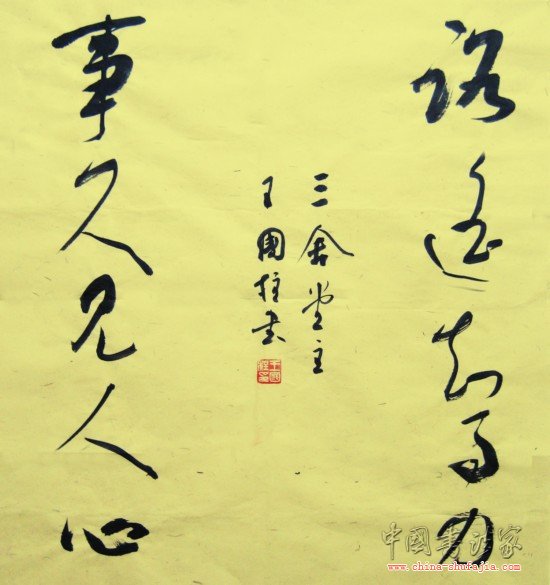 路遥知马力
三舍堂主
王国柱书
事久见人心
中国书法家
www.china-shufajia.com